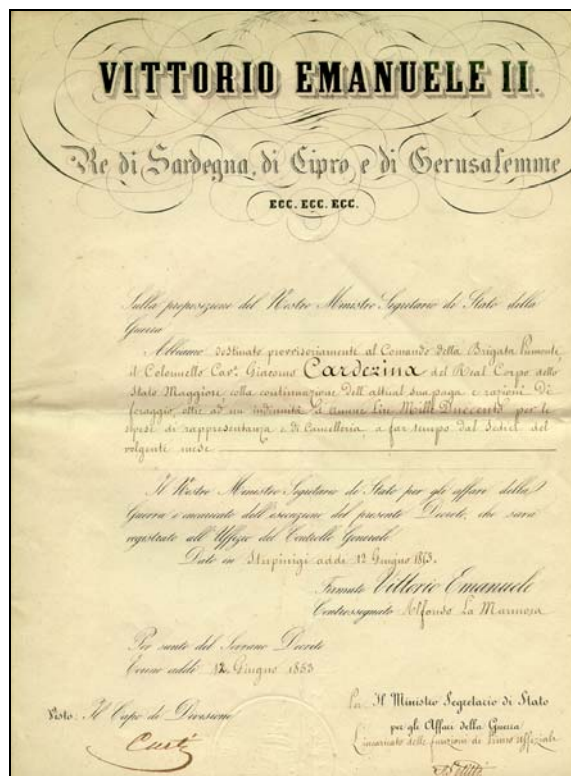 VITTORIO EMANUELE II.
Re di Sardegna, di Cipro e di Gerusalemme
ECC. ECC. ECC.
Sulla proposizione del Nostro Ministro Segretario di Stato della
Guerra
Abbiamo destinato provvisoriamente al Comando della Brigata Piemonte
il Colonnello Cav.e Giacomo Carderina del Real Corpo dello
Stato Maggiore colla continuazione dell'attual sua paga e razioni di
foraggio, oltre ad un indennità d'annue Lire Mille Duecento per le
spese di rappresentanza e di Cancelleria, a far tempo dal Sedici del
volgente mese
Il Nostro Ministro Segretario di Stato per gli affari della
Guerra è incaricato dell'esecuzione del presente Decreto, che sarà
registrato all'Uffizio del Controllo Generale
Dato in Stupinigi addì 12 Giugno 1853.
Firmato Vittorio Emanuele
Controssegnato Alfonso La Marmora
Per sunto del Sovrano Decreto
Torino addì 12 Giugno 1853
Visto: Il Capo di Divisione
Il Ministro Segretario di Stato
per gli Affari della Guerra
L'incaricato delle funzioni di Primo Uffiziale